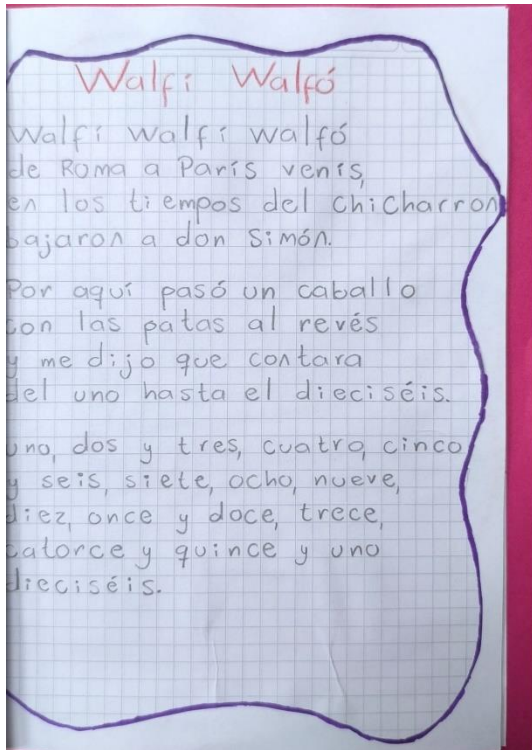 Walfí Walfó
Walfí walfí walfó
de Roma a París venís,
en los tiempos del chicharron
bajaron a don Simón.
Por aquí pasó un caballo
con las patas al revés
y me dijo que contara
del uno hasta el dieciséis.
uno, dos y tres, cuatro, cinco
y seis, siete, ocho, nueve,
diez, once y doce, trece,
catorce y quince y uno
dieciséis.